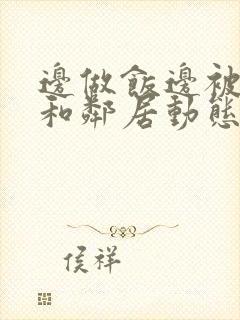 邊做飯邊被
和鄰居動態
侯祥